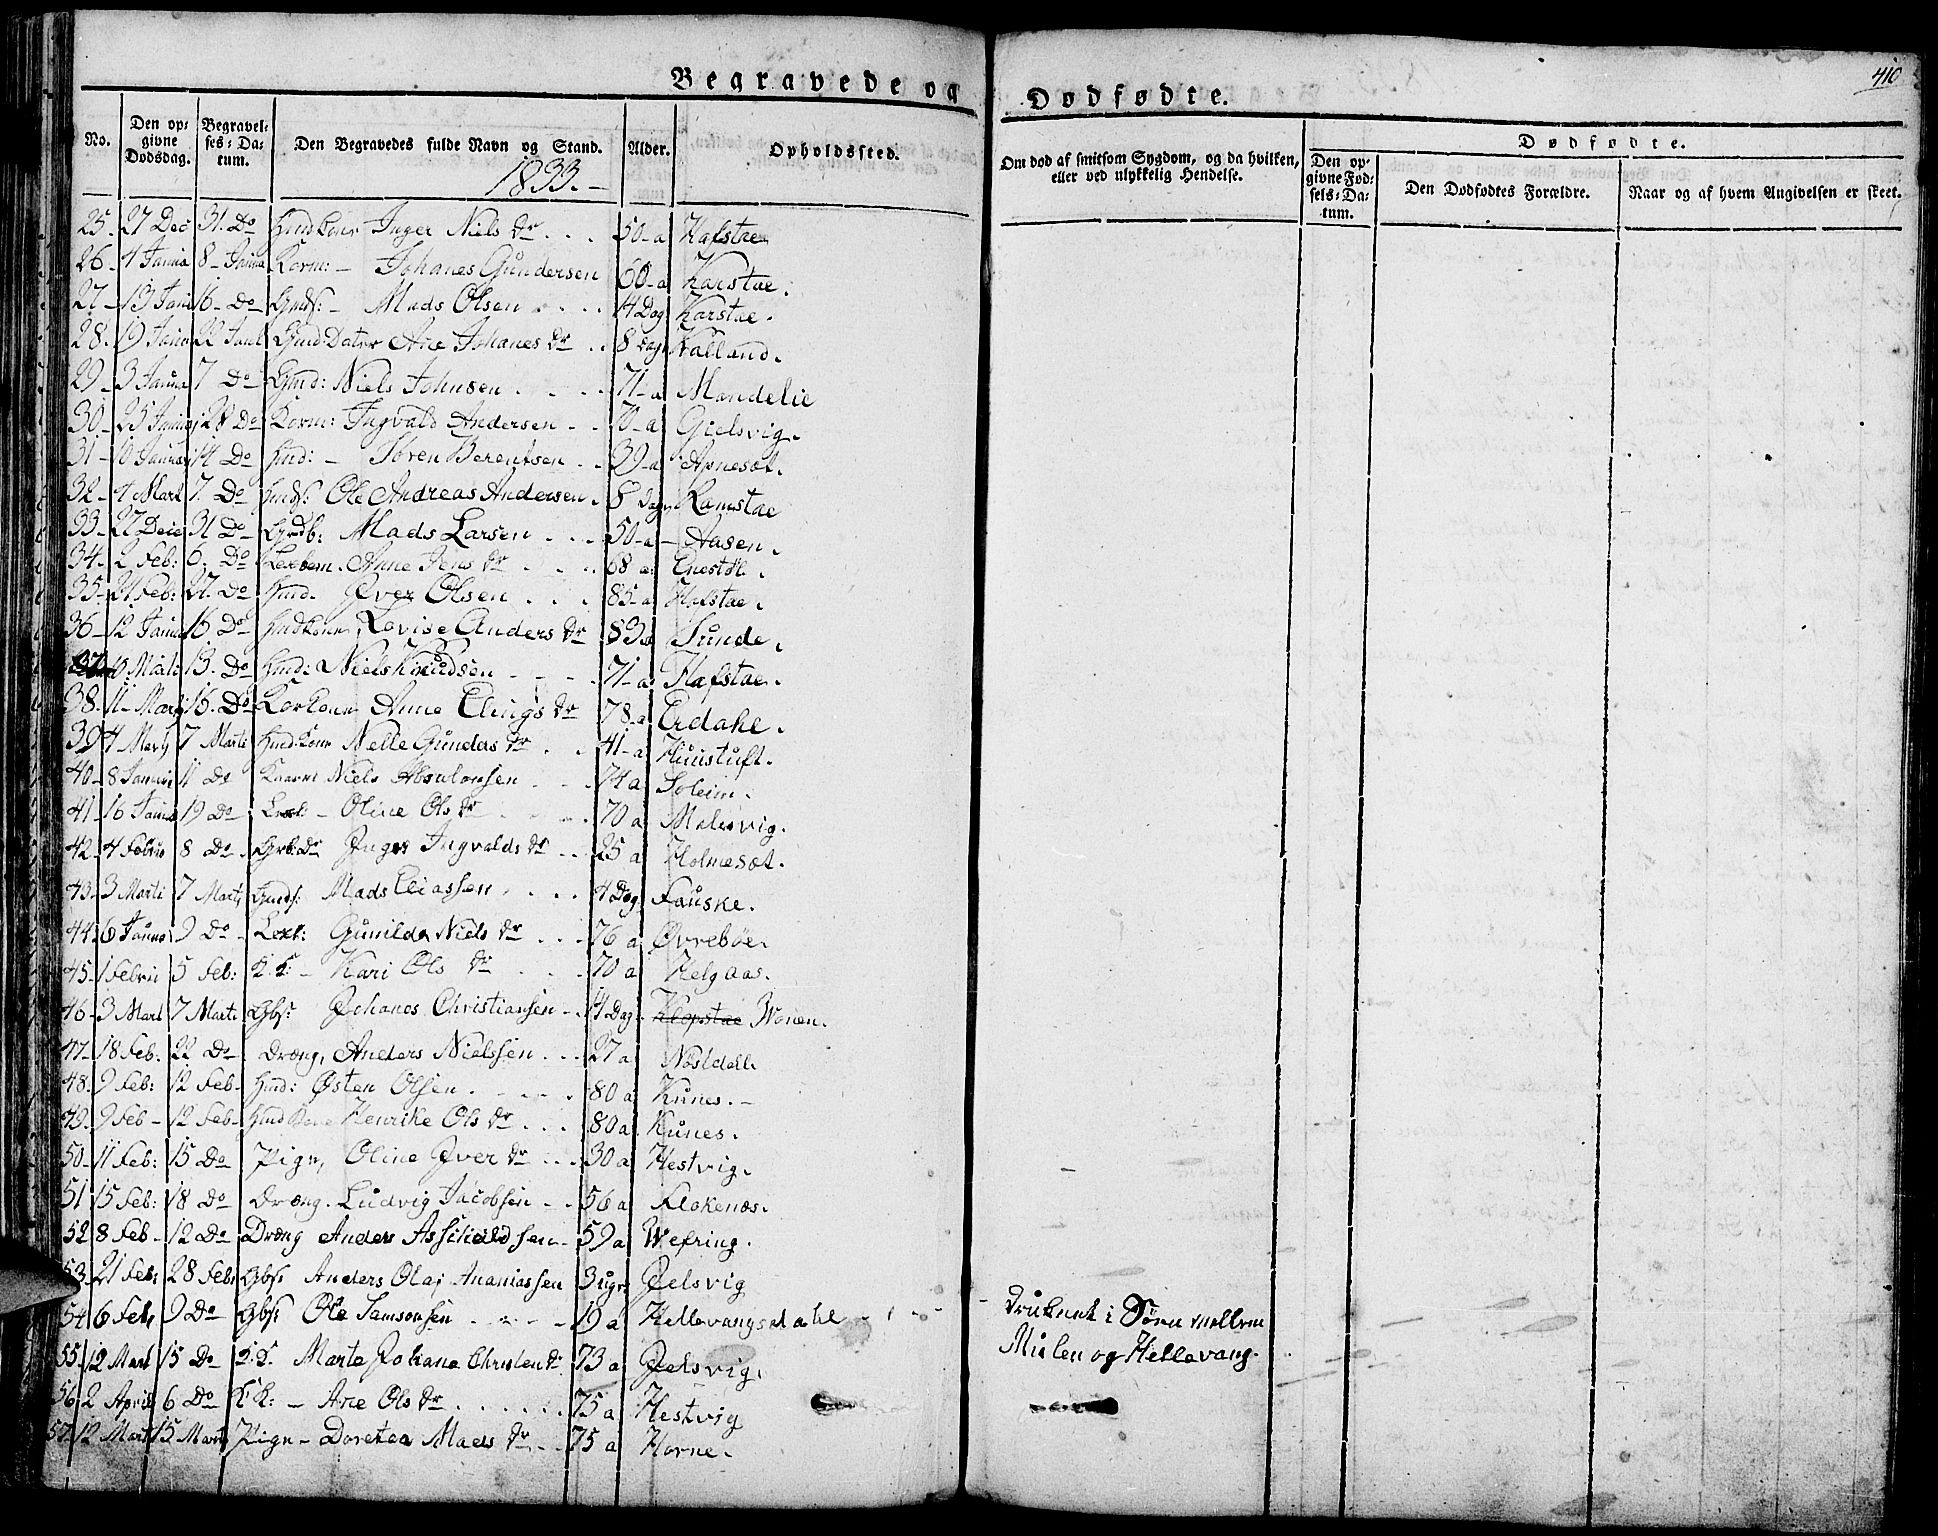 Begravede og Dødfødte.
410
No. Den opgivne Dødsdag. Begravelses-Datum. Den Begravedes fulde Navn og Stand. Alder. Opholdssted. Om død af smitsom Sygdom, og da hvilken, eller ved ulykkelig Hendelse. Dødfødte.
Den opgivne Fødsels-Datum. Den Dødfødtes Forældre. Naar og af hvem Angivelsen er skeet.
1833.-
25. 27 Dec 31. Do Hmdkone Inger Niels dr 50-a Hafstae
26- 4 Janua 8- Janua Korm:- Johanes Gundersen 60-a Karstae.
27- 13 Janu 16- Do Gmds:- Mads Olsen 14 Dag Karstae.
28. 19 Janu 22 Janu Gmd Dater Ane Johanes dr 8 Dag Kalland.
29- 3 Janua 7 Do Gmd: Niels Johnsen 71-a Mandelie
30- 25 Janua 28 Do Korm: Ingvald Andersen 70-a Gielsvig.
31- 10 Januar 14 Do Hmd:- Søren Berentsen 39-a Apnesæt.
32- 4 Mart 7. Do Hmds: Ole Andreas Andersen 8 Dage Ramstae
33- 27 Dece 31 Do Grdb: Mads Larsen 50-a Aasen.
34- 2 Feb: 6. Do Anne Jens dr 68 a:
35- 21 Feb: 27. Do Hmd. Iver Olsen 85-a Hafstae.
36- 12 Janua 16. Do Hmdkone Lovise Anders dr 83a Sunde.
37 10 Marti 13. Do Hmd: Niels Knudsen 71-a Hafstae.
38. 11- Marti 16. Do Korkone Anne Elings dr 78-a Erdahl.
39 4 Marti 7 Marti Hmd:kone Nelle Gunders dr 41-a Hunstuft.
40- 8 Januari 11 Do Kaarm Niels Absalonsen 74 a Soleim.
41- 16 Janua 19 Do Lext- Oline Ols dr 70 a Malsvig.
42- 4 Febru 8 Do Grb.Dr Inger Ingvalds dr 25 a Holmesæt.
43- 3 Marti 7 Marti Gmds: Mads Eliassen 4 Dag Fauske.
44. 6 Janua 9 Do Lext: Gunilda Niels dr 76 a Øvrebøe.
45- 1 Febru 5 Feb: K.K:- Kari Ols dr 70 a Helgaas.
46- 3 Mart 7 Marti Gbs: Johanes Christiansen 14 Dag. Klopstae Wonen.
47- 18 Feb: 22 Do Dræng, Anders Nielssen 27 a Nøstdal
48- 9 Feb: 12 Feb- Hmd: Østen Olsen 80 a Kunes.-
49. 9 Feb- 12 Feb- Hmd Kone Henrike Ols dr 80 a Kunes.
50- 11 Feb: 15 Do Pign, Oline Iver dr 30 a Hestvig.
51 15 Feb: 18 Do Dræng. Ludvig Jacobsen 56 a Flokenæs.
52 8 Feb- 12 Do Dræng Anders Assilieldsen 59 a Wefring.
53. 21 Feb: 28 Feb: Gbs: Anders Olai Ananiassen 3 ugr Ielsvig
54 6 Feb, 9 Do Gbs: Ole Samsonsen 19 a Hellevangsdahl - Druknet i Søen mellem
Mulen og Hellevang.
55 12 Mart 15 Do K.K. Marte Johane Christen dr 73 a Ielsvig.
56 2 April 6 Do K.K:- Ane Ols dr 75 a Hestvig
57. 12 Mart 15 Marti Pign- Doretea Mads dr 75 a Horne.